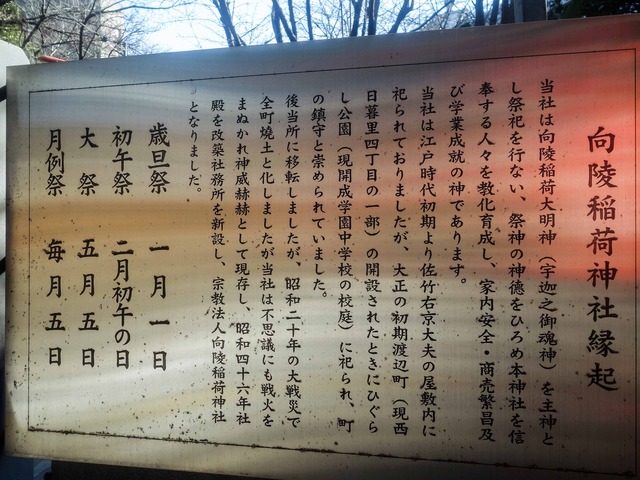 向陵稲荷神社縁起
当社は向陵稲荷大明神（宇迦之御魂神）を主神と
し祭祀を行ない、祭神の神徳をひろめ本神社を信
奉する人々を教化育成し、家内安全・商売繁昌及
び学業成就の神であります。
当社は江戸時代初期より佐竹右京大夫の屋敷内に
祀られておりましたが、大正の初期渡辺町（現西
日暮里四丁目の一部）の開設されたときにひぐら
し公園（現開成学園中学校の校庭）に祀られ、町
の鎮守と崇められていました。
後当所に移転しましたが、昭和二十年の大戦災で
全町焼土と化しましたが当社は不思議にも戦火を
まぬかれ神威赫赫として現存し、昭和四十六年社
殿を改築社務所を新設し、宗教法人向陵稲荷神社
となりました。
歳旦祭 一月一日
初午祭 二月初午の日
大祭 五月五日
月例祭 毎月五日